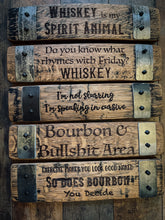 Whiskey is my
Spirit Animal
Do you know what
rhymes with Friday?
WHISKEY
I'm not slurring
I'm speaking in cursive
Bourbon &
Bullshit Area
Exercise Makes You Look Good Naked
So Does Bourbon
You Decide